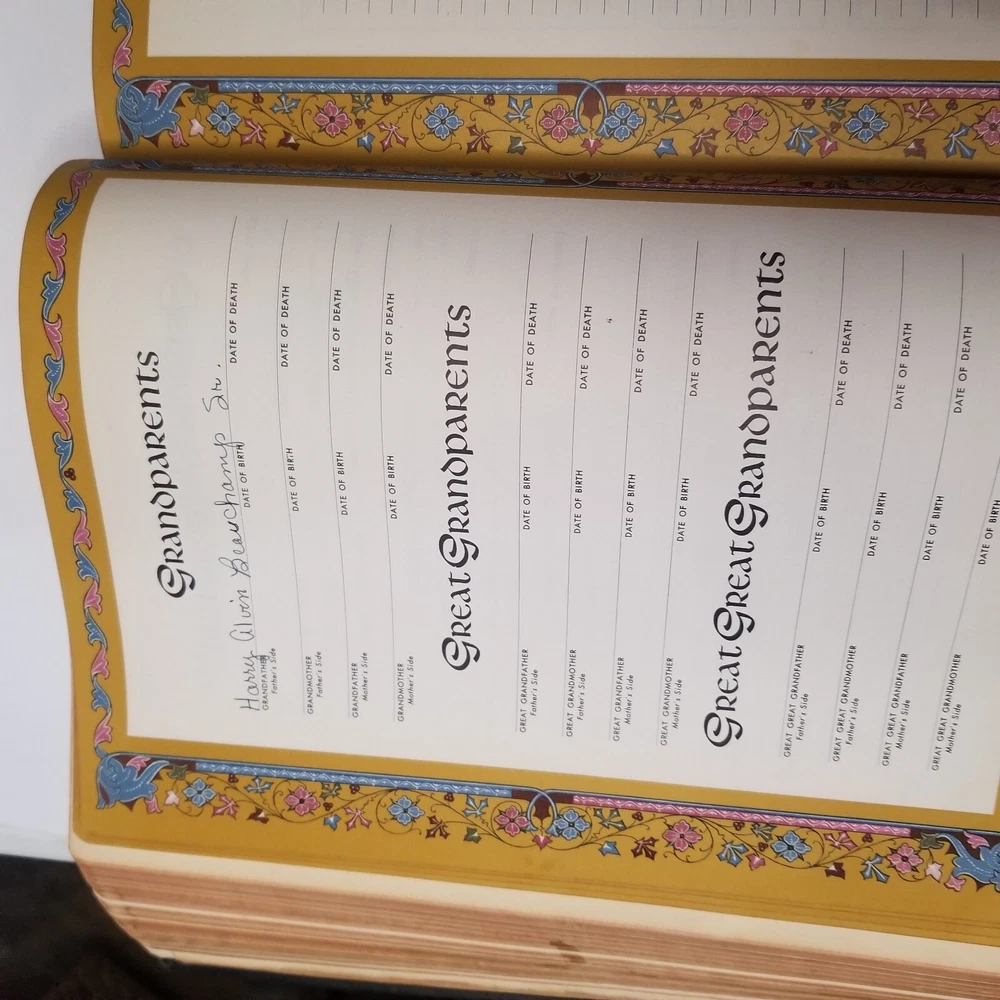 Grandparents
Harry Alvin Beauchamp Sr.
GRANDFATHER DATE OF BIRTH DATE OF DEATH
Father's Side
GRANDMOTHER DATE OF BIRTH DATE OF DEATH
Father's Side
GRANDFATHER DATE OF BIRTH DATE OF DEATH
Mother's Side
GRANDMOTHER DATE OF BIRTH DATE OF DEATH
Mother's Side
Great Grandparents
GREAT GRANDFATHER DATE OF BIRTH DATE OF DEATH
Father's Side
GREAT GRANDMOTHER DATE OF BIRTH DATE OF DEATH
Father's Side
GREAT GRANDFATHER DATE OF BIRTH DATE OF DEATH
Mother's Side
GREAT GRANDMOTHER DATE OF BIRTH DATE OF DEATH
Mother's Side
Great Great Grandparents
GREAT GREAT GRANDFATHER DATE OF BIRTH DATE OF DEATH
Father's Side
GREAT GREAT GRANDMOTHER DATE OF BIRTH DATE OF DEATH
Father's Side
GREAT GREAT GRANDFATHER DATE OF BIRTH DATE OF DEATH
Mother's Side
GREAT GREAT GRANDMOTHER DATE OF BIRTH
Mother's Side